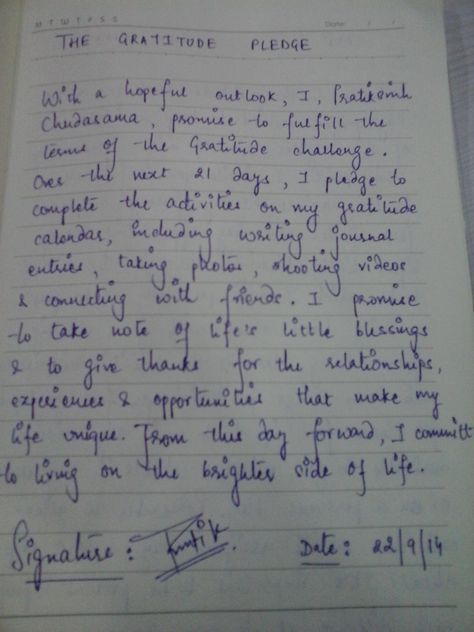 M T W T F S S Date: / /
THE GRATITUDE PLEDGE
With a hopeful outlook, I, Pratiksinh
Chudasama, promise to fulfill the
terms of the Gratitude challenge.
Over the next 21 days, I pledge to
complete the activities on my gratitude
calendar, including writing journal
entries, taking photos, shooting videos
& connecting with friends. I promise
to take note of life's little blessings
& to give thanks for the relationships,
experiences & opportunities that make my
life unique. From this day forward, I committ
to living on the brighter side of life.
Signature: Date: 22/9/14